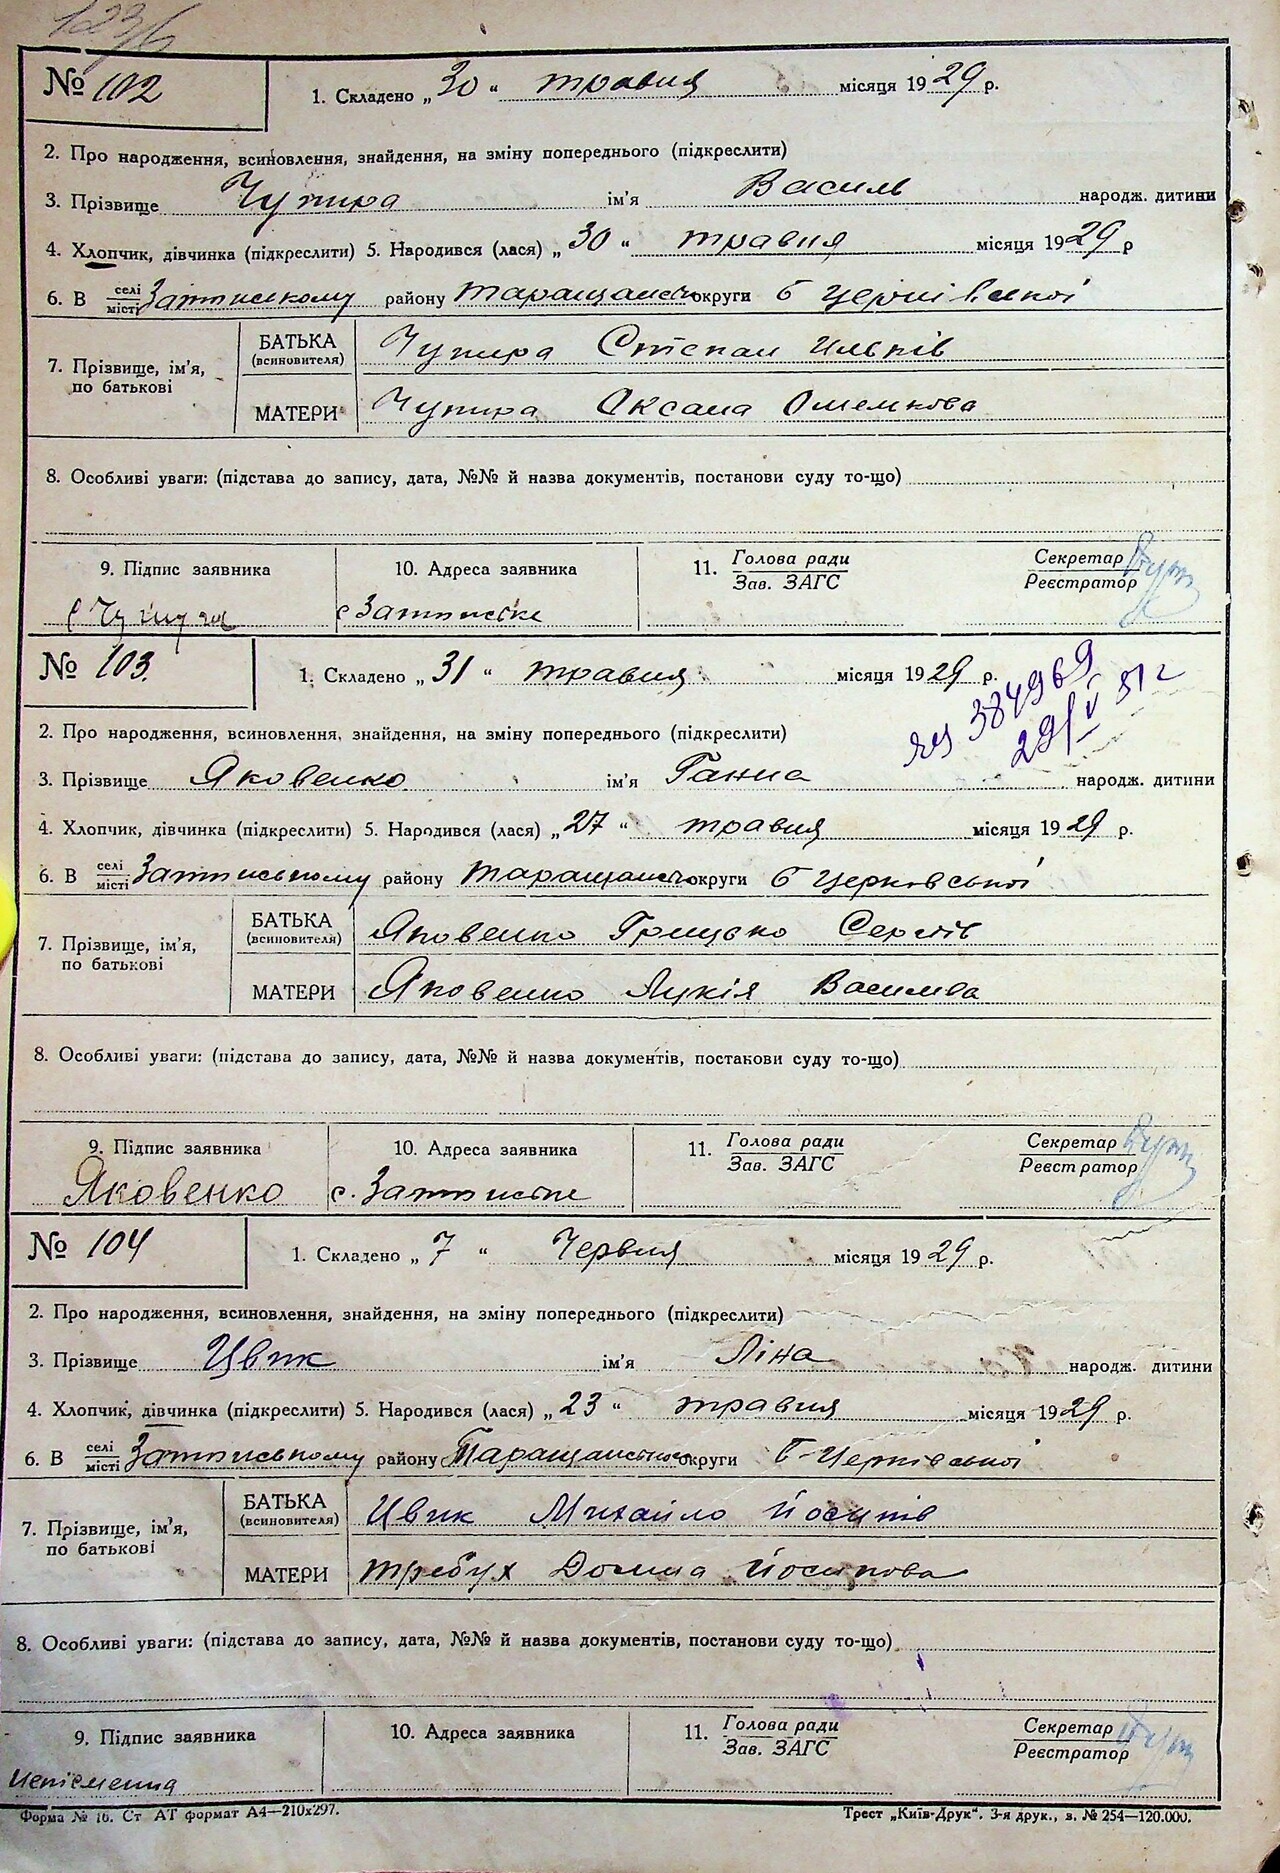 123/6
№ 102 1. Складено „30“ травня місяця 1929 р.
2. Про народження, всиновлення, знайдення, на зміну попереднього (підкреслити)
3. Прізвище Чупира ім'я Василь народж. дитини
4. Хлопчик, дівчинка (підкреслити) 5. Народився (лася) „30“ травня місяця 1929 р
6. В селі/місті Затиському району Таращанськ округи Б Церківської
7. Прізвище, ім'я, по батькові
БАТЬКА (всиновителя) Чупира Степан Ильків
МАТЕРИ Чупира Оксана Омелькова
8. Особливі уваги: (підстава до запису, дата, №№ й назва документів, постанови суду то-що)
9. Підпис заявника 10. Адреса заявника 11. Голова ради Секретар
Зав. ЗАГС Реєстратор
с Затиські
№ 103. 1. Складено „31“ травня місяця 1929 р.
384969
29/V 51 г
2. Про народження, всиновлення, знайдення, на зміну попереднього (підкреслити)
3. Прізвище Яковенко ім'я Ганна народж. дитини
4. Хлопчик, дівчинка (підкреслити) 5. Народився (лася) „27“ травня місяця 1929 р.
6. В селі/місті Затиському району Таращанськ округи Б Церковської
7. Прізвище, ім'я, по батькові
БАТЬКА (всиновителя) Яковенко Грицько Сергіїв
МАТЕРИ Яковенко Лукія Василева
8. Особливі уваги: (підстава до запису, дата, №№ й назва документів, постакови суду то-що)
9. Підпис заявника 10. Адреса заявника 11. Голова ради Секретар
Зав. ЗАГС Реєстратор
Яковенко с. Затиські
№ 104 1. Складено „7“ Червня місяця 1929 р.
2. Про народження, всиновлення, знайдення, на зміну попереднього (підкреслити)
3. Прізвище Цвик ім'я Ліна народж. дитини
4. Хлопчик, дівчинка (підкреслити) 5. Народився (лася) „23“ травня місяця 1929 р.
6. В селі/місті Затиському району Таращанської округи Б-Церківської
7. Прізвище, ім'я, по батькові
БАТЬКА (всиновителя) Цвик Михайло Йосипів
МАТЕРИ Требух Домна Йосипова
8. Особливі уваги: (підстава до запису, дата, №№ й назва документів, постанови суду то-що)
9. Підпис заявника 10. Адреса заявника 11. Голова ради Секретар
Зав. ЗАГС Реєстратор
неписменна
Форма № 16. Ст АТ формат А4—210х297. Трест „Київ-Друк“. 3-я друк., з. № 254—120.000.